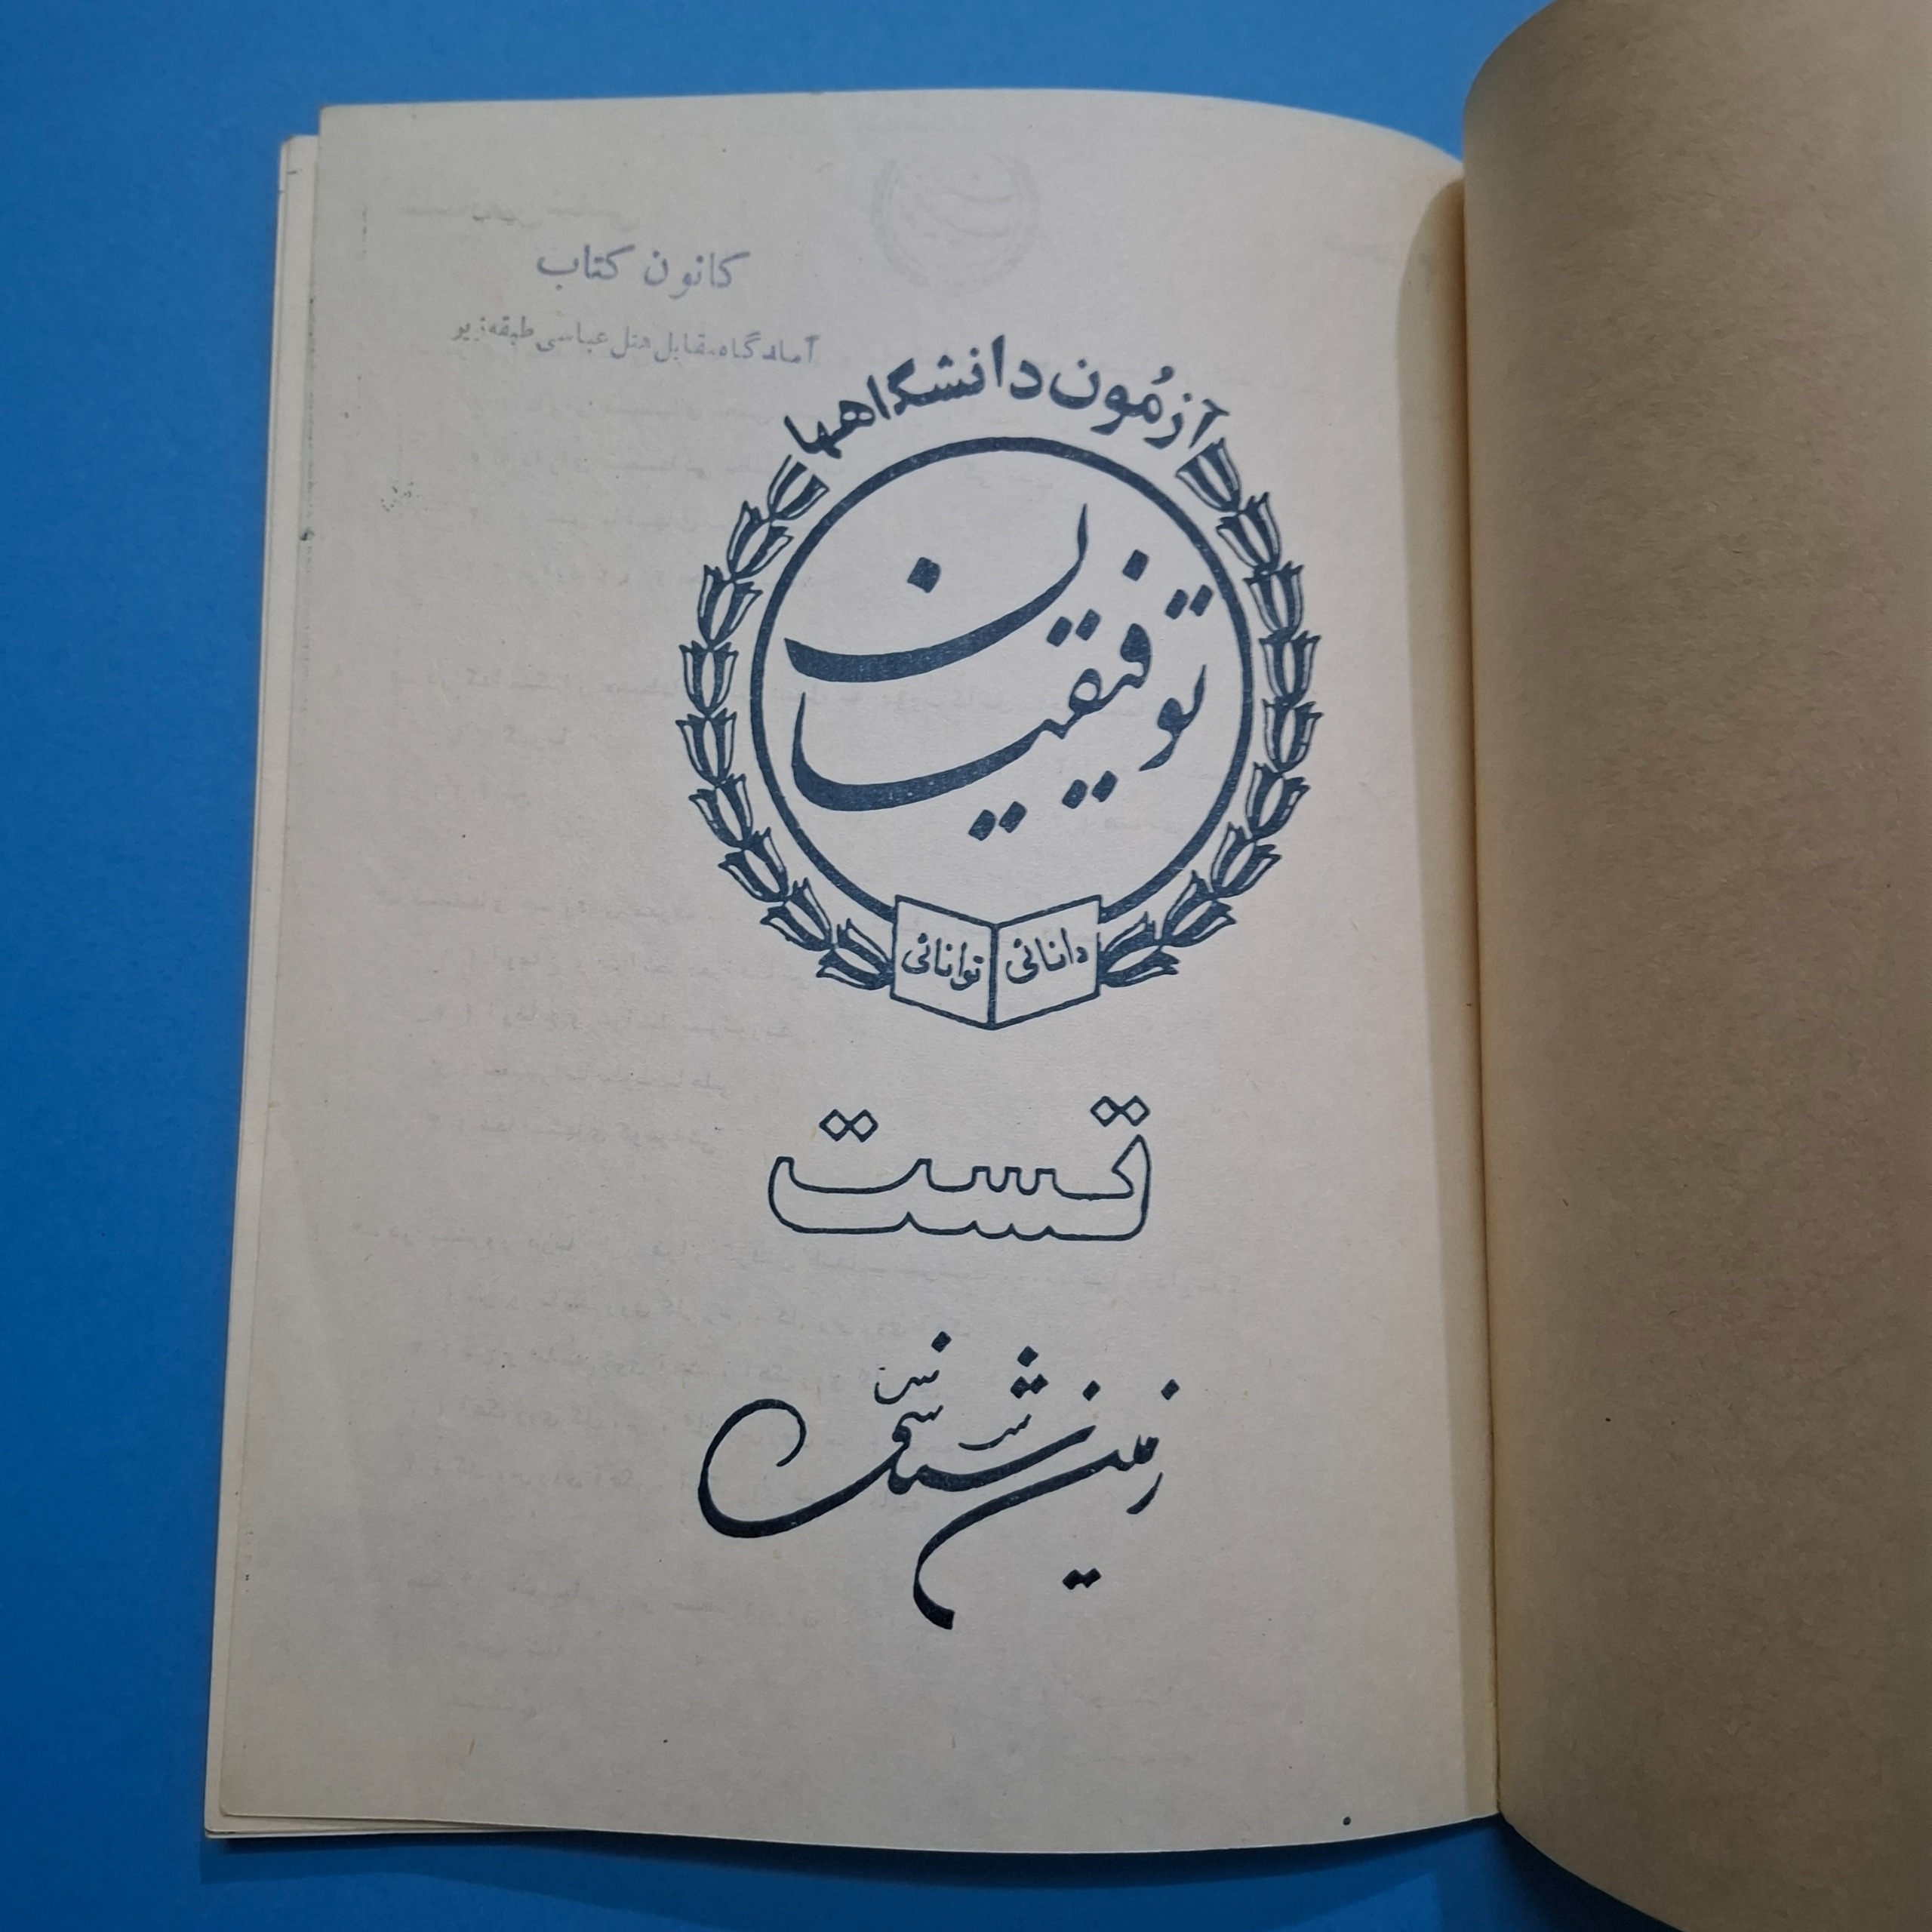 کانون کتاب
آمادگاه مقابل هتل عباسی طبقه زیر
آزمُون دانشگاهها
توفیقیان
دانائی توانائی
تست
زمین شناسی